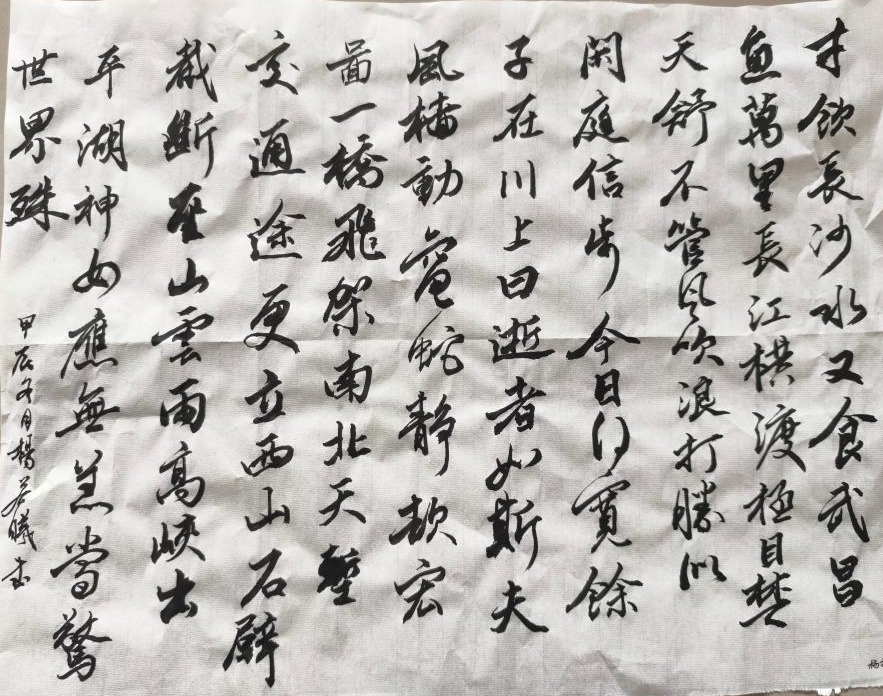 才飲長沙水又食武昌
魚萬里長江橫渡極目楚
天舒不管風吹浪打勝似
閑庭信步今日得寬餘
子在川上曰逝者如斯夫
風樯動龜蛇靜起宏
圖一橋飛架南北天塹
變通途更立西山石壁
截斷巫山雲雨高峽出
平湖神女應無恙當驚
世界殊
甲辰冬月楊若曦書